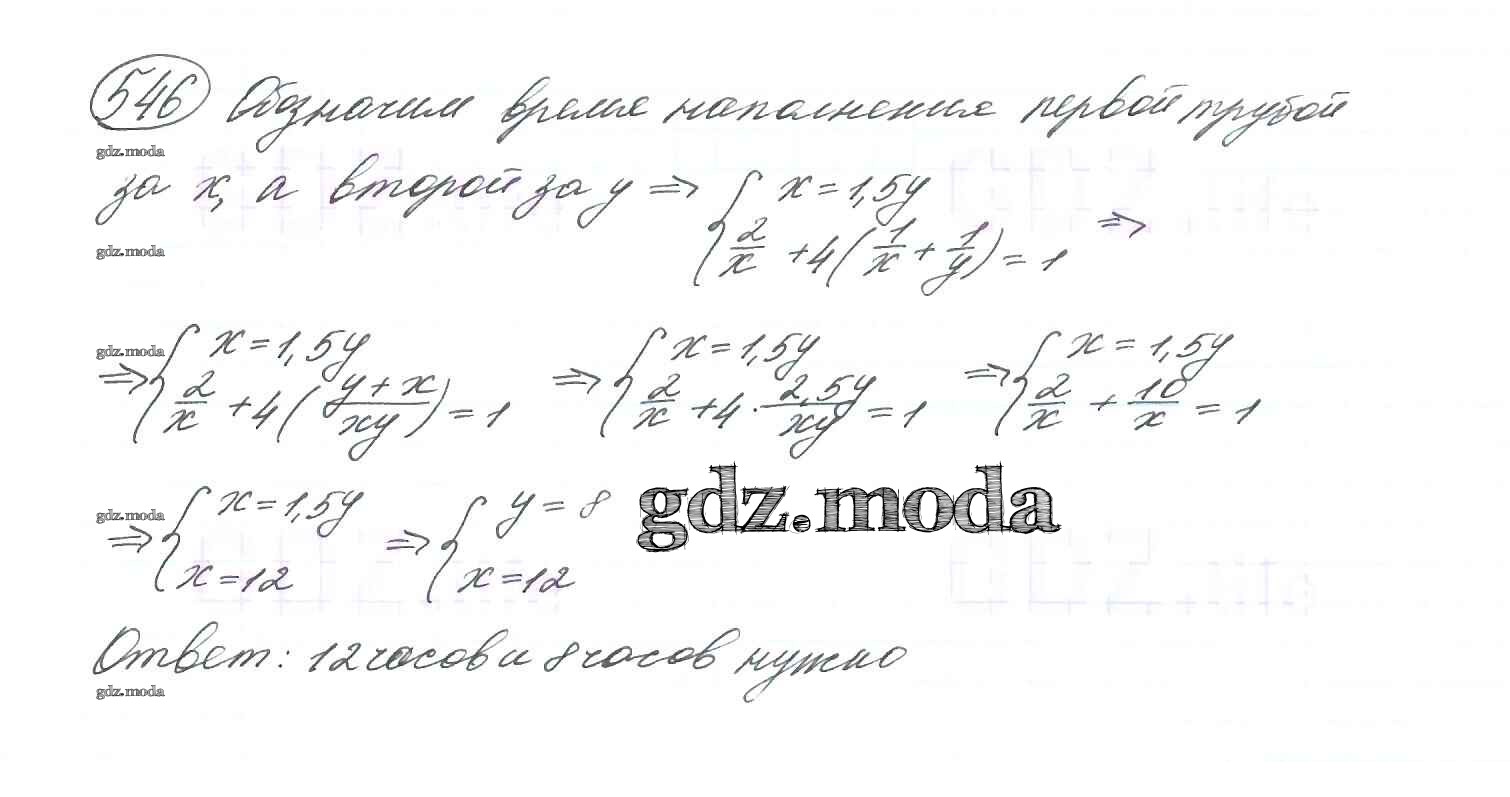 546 Обозначим время наполнения первой трубой
gdz.moda
за x, а второй за y => { x = 1,5y
gdz.moda
2/x + 4(1/x + 1/y) = 1 =>
gdz.moda
=> { x = 1,5y => { x = 1,5y => { x = 1,5y
2/x + 4((y + x)/xy) = 1 2/x + 4 · 2,5y/xy = 1 2/x + 10/x = 1
gdz.moda
=> { x = 1,5y => { y = 8
x = 12 x = 12
gdz.moda
Ответ: 12 часов и 8 часов нужно
gdz.moda